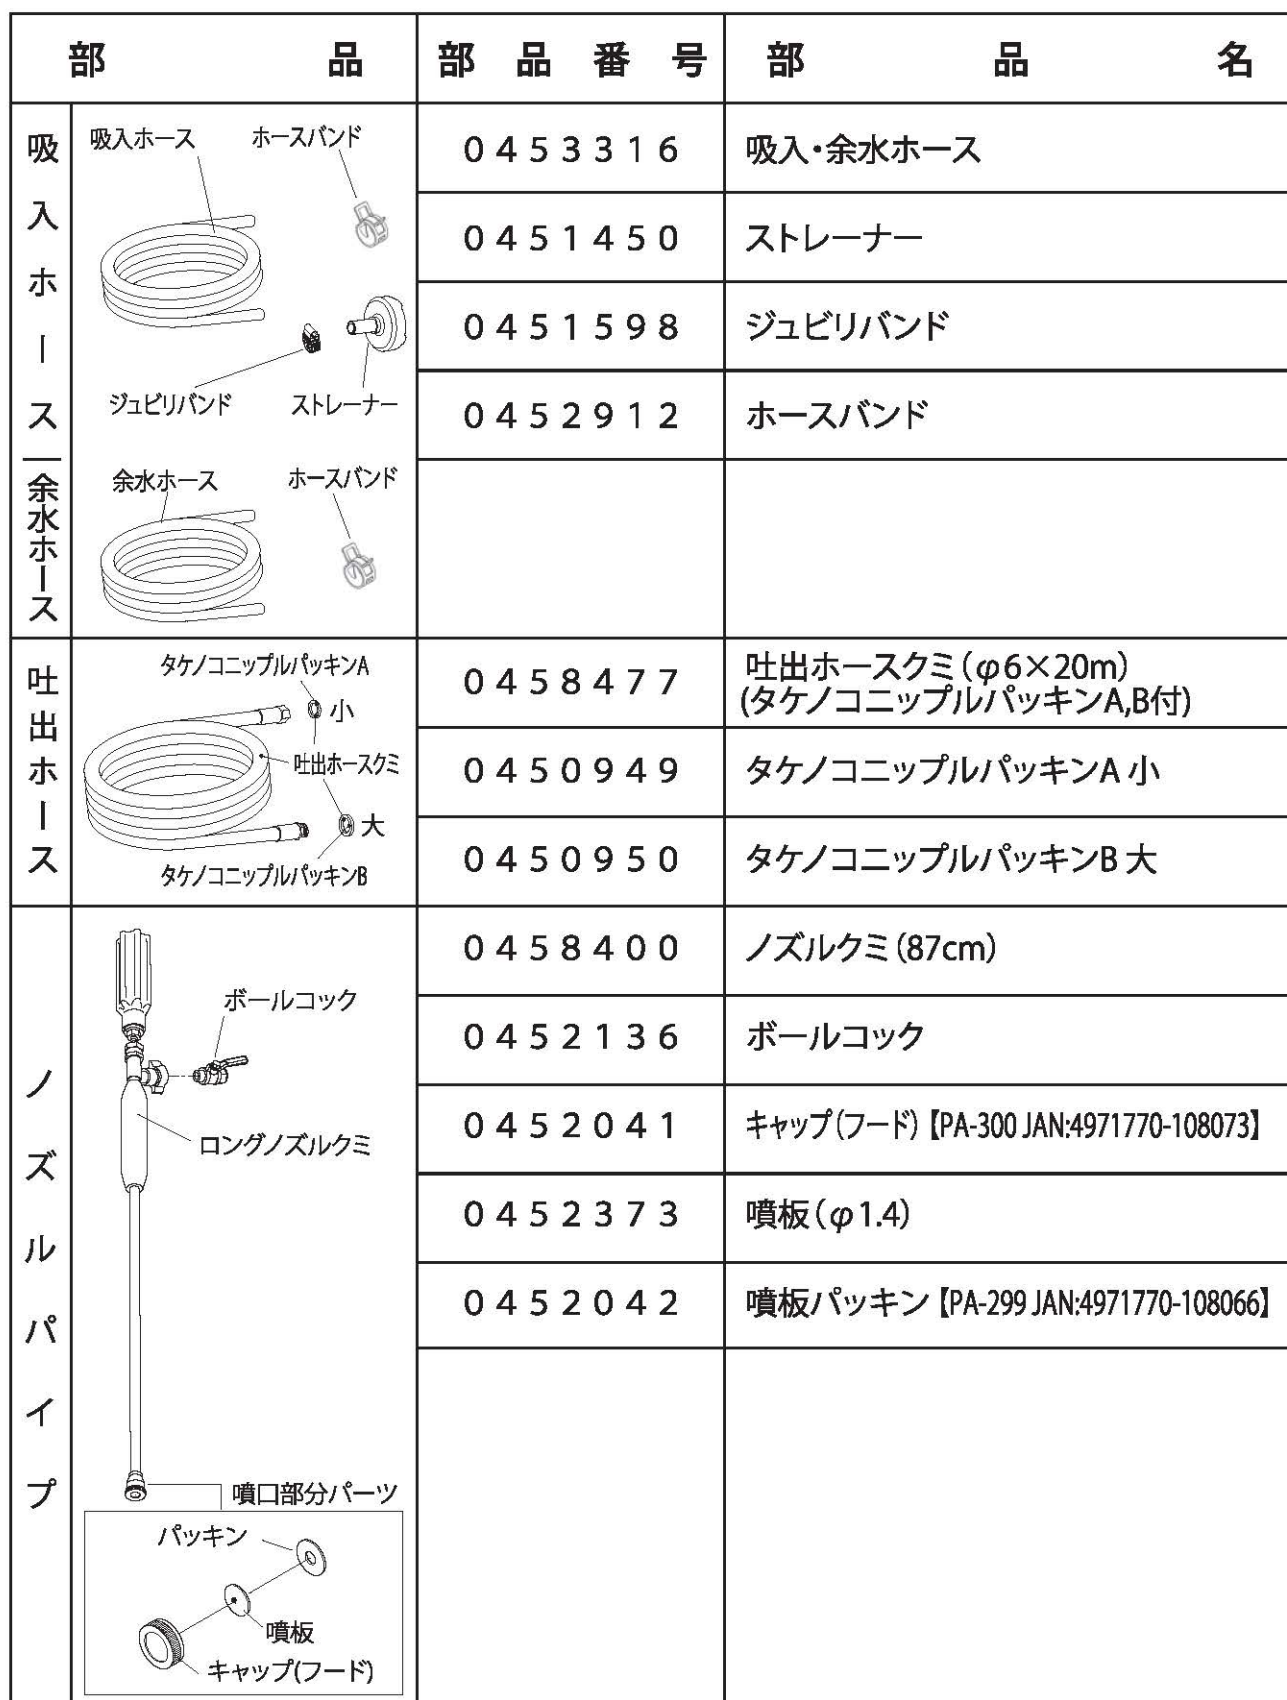 部品 部品番号 部品名
吸入ホース
吸入ホース
ホースバンド
ジュビリバンド
ストレーナー
0453316 吸入・余水ホース
0451450 ストレーナー
0451598 ジュビリバンド
0452912 ホースバンド
余水ホース
余水ホース
ホースバンド
吐出ホース
タケノコニップルパッキンA
小
吐出ホースクミ
大
タケノコニップルパッキンB
0458477 吐出ホースクミ(φ6×20m)
(タケノコニップルパッキンA,B付)
0450949 タケノコニップルパッキンA 小
0450950 タケノコニップルパッキンB 大
ノズルパイプ
ボールコック
ロングノズルクミ
噴口部分パーツ
パッキン
噴板
キャップ(フード)
0458400 ノズルクミ(87cm)
0452136 ボールコック
0452041 キャップ(フード)【PA-300 JAN:4971770-108073】
0452373 噴板(φ1.4)
0452042 噴板パッキン【PA-299 JAN:4971770-108066】